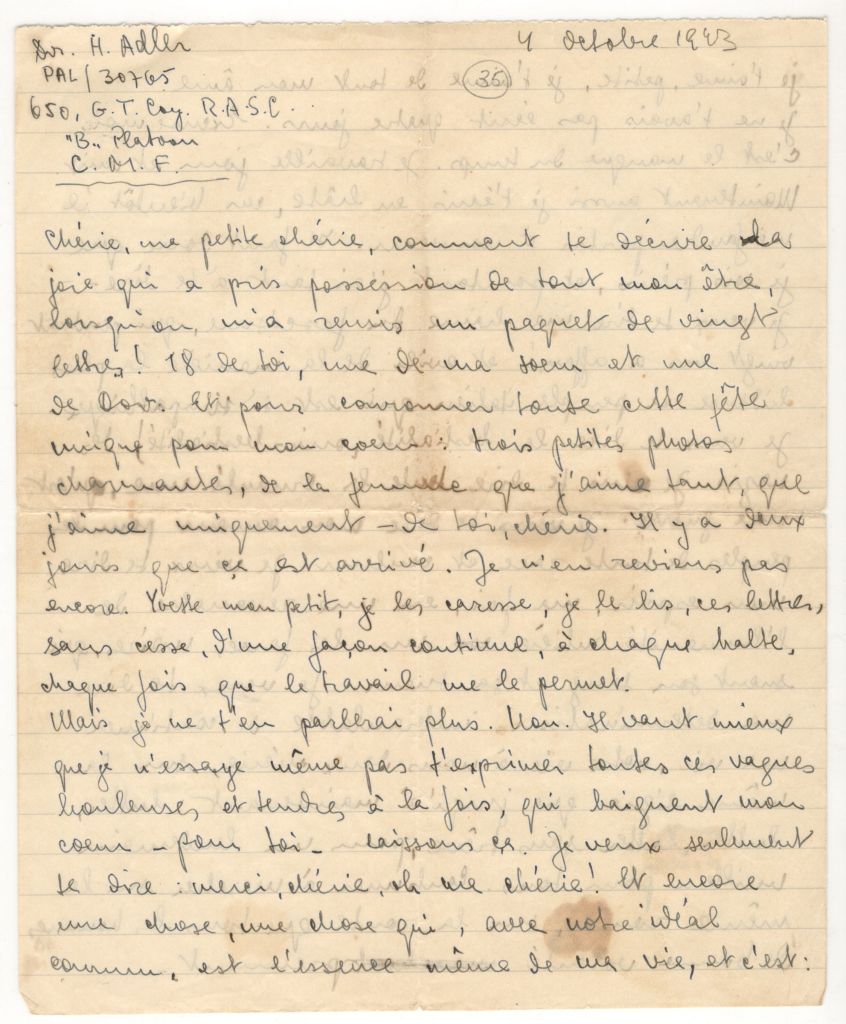 Dr. H. Adler
4 Octobre 1943
PAL/30765
35
650, G.T. Coy. R.A.S.C.
"B" Platoon
C.M.F.
Chérie, ma petite chérie, comment te décrire la
joie qui a pris possession de tout mon être,
lorsqu'on m'a remis un paquet de vingt
lettres! 18 de toi, une de ma soeur et une
de Dov. Et pour couronner toute cette fête
unique pour mon coeur: trois petites photos
charmantes, de la femme que j'aime tant, que
j'aime uniquement - de toi, chérie. Il y a deux
jours que ça est arrivé. Je n'en reviens pas
encore. Yvette mon petit, je les caresse, je le lis, ces lettres,
sans cesse, d'une façon continue, à chaque halte,
chaque fois que le travail me le permet.
Mais je ne t'en parlerai plus. Non. Il vaut mieux
que je n'essaye même pas t'exprimer toutes ces vagues
houleuses et tendres à la fois, qui baignent mon
coeur - pour toi - laissons ça. Je veux seulement
te dire: merci, chérie, oh ma chérie! Et encore
une chose, une chose qui, avec notre idéal
commun, est l'essence même de ma vie, et c'est: